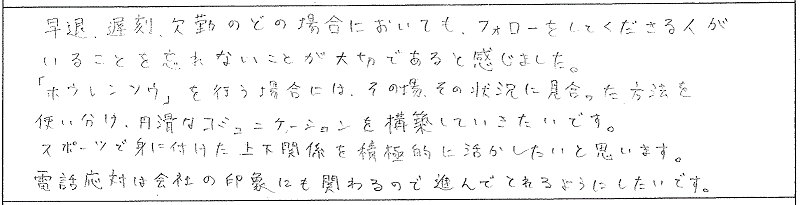 早退、遅刻、欠勤のどの場合においても、フォローをしてくださる人が
いることを忘れないことが大切であると感じました。
「ホウレンソウ」を行う場合には、その場、その状況に見合った方法を
使い分け、円滑なコミュニケーションを構築していきたいです。
スポーツで身に付けた上下関係を積極的に活かしたいと思います。
電話応対は会社の印象にも関わるので進んでとれるようにしたいです。